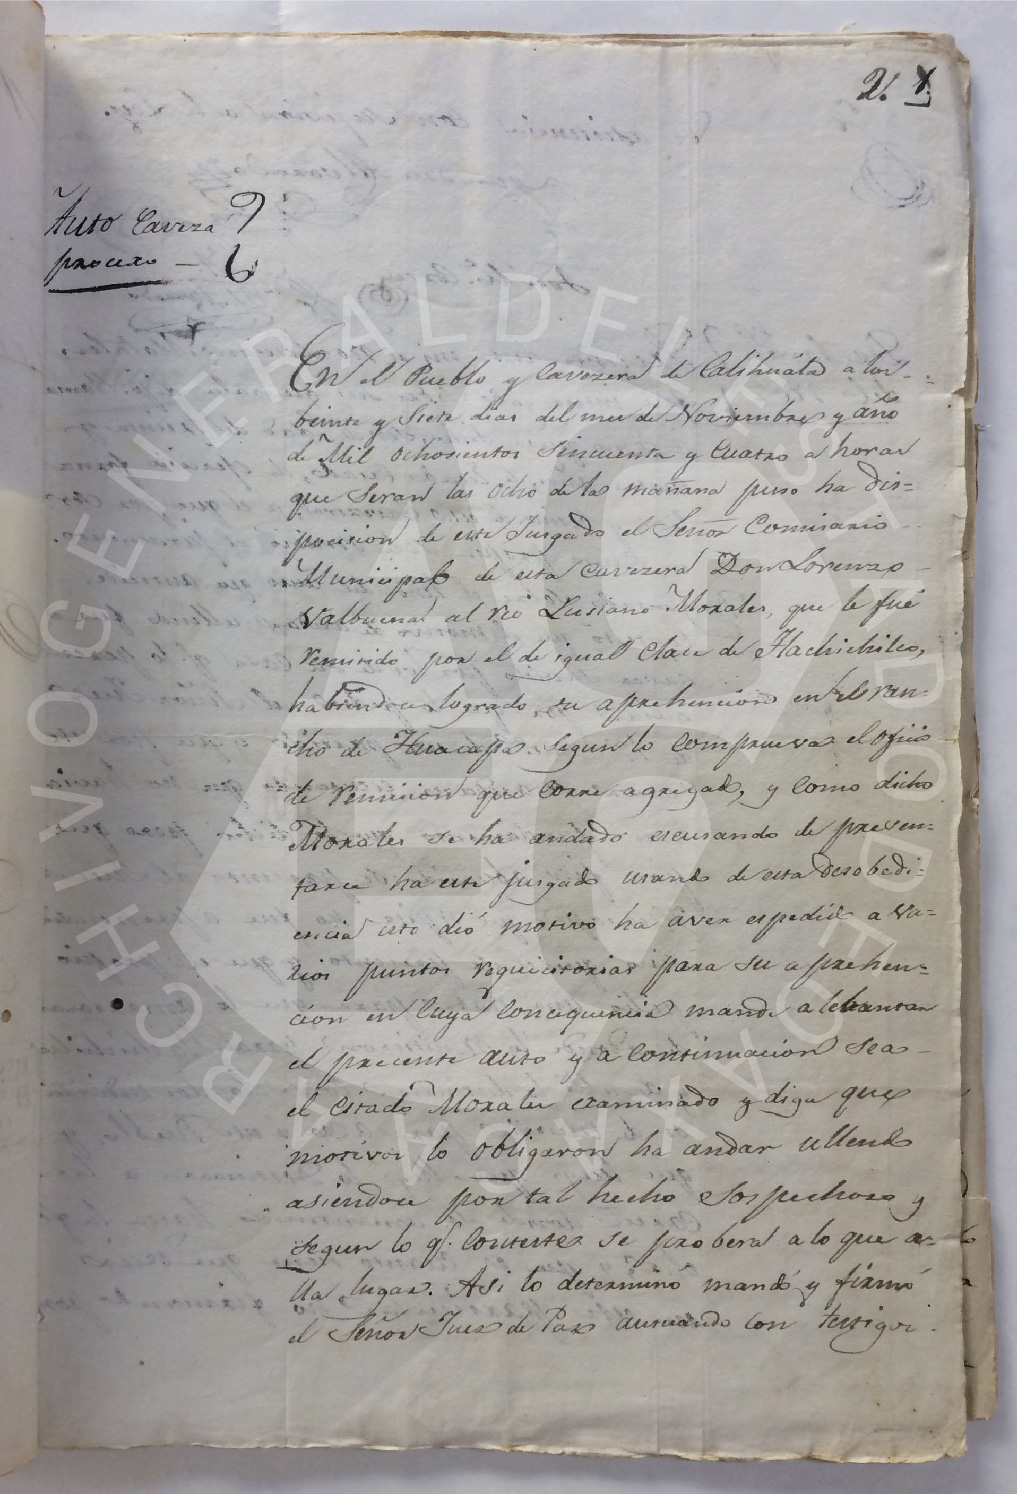 2.
Auto Caveza
proceso
En el Pueblo y Cavezera de Calihualá a los
beinte y Siete dias del mes de Noviembre y año
de Mil ochosientos Sincuenta y Cuatro a horas
que Seran las ocho de la mañana puso ha dis=
pocicion de este Jusgado el Señor Comisario
Municipal de esta Cavezera Don Lorenzo
Valbuena al reó Lusiano Morales, que le fué
remitido por el de igual Clace de Tlachichilco,
habiendoce logrado su aprehencion en el ran=
cho de Huacapa segun lo comprueva el oficio
de remicion que corre agregado, y como dicho
Morales se ha andado escusando de presen=
tarce ha este jusgado usando de esta desobedi=
encia esto dió motivo ha aver espedido a va=
rios puntos requicitorias para su aprehen=
cion en Cuya Concequencia mandé a lebantar
el precente auto y a continuacion sea
el Citado Morales examinado y diga que
motivos lo obligaron ha andar ullendo
asiendoce por tal hecho Sospechoso y
segun lo q.e conteste se proberá a lo que a=
lla lugar. Asi lo determinó mandó y firmó
el Señor Jues de Paz autuando con testigos.
ARCHIVO GENERAL DEL ESTADO DE OAXACA